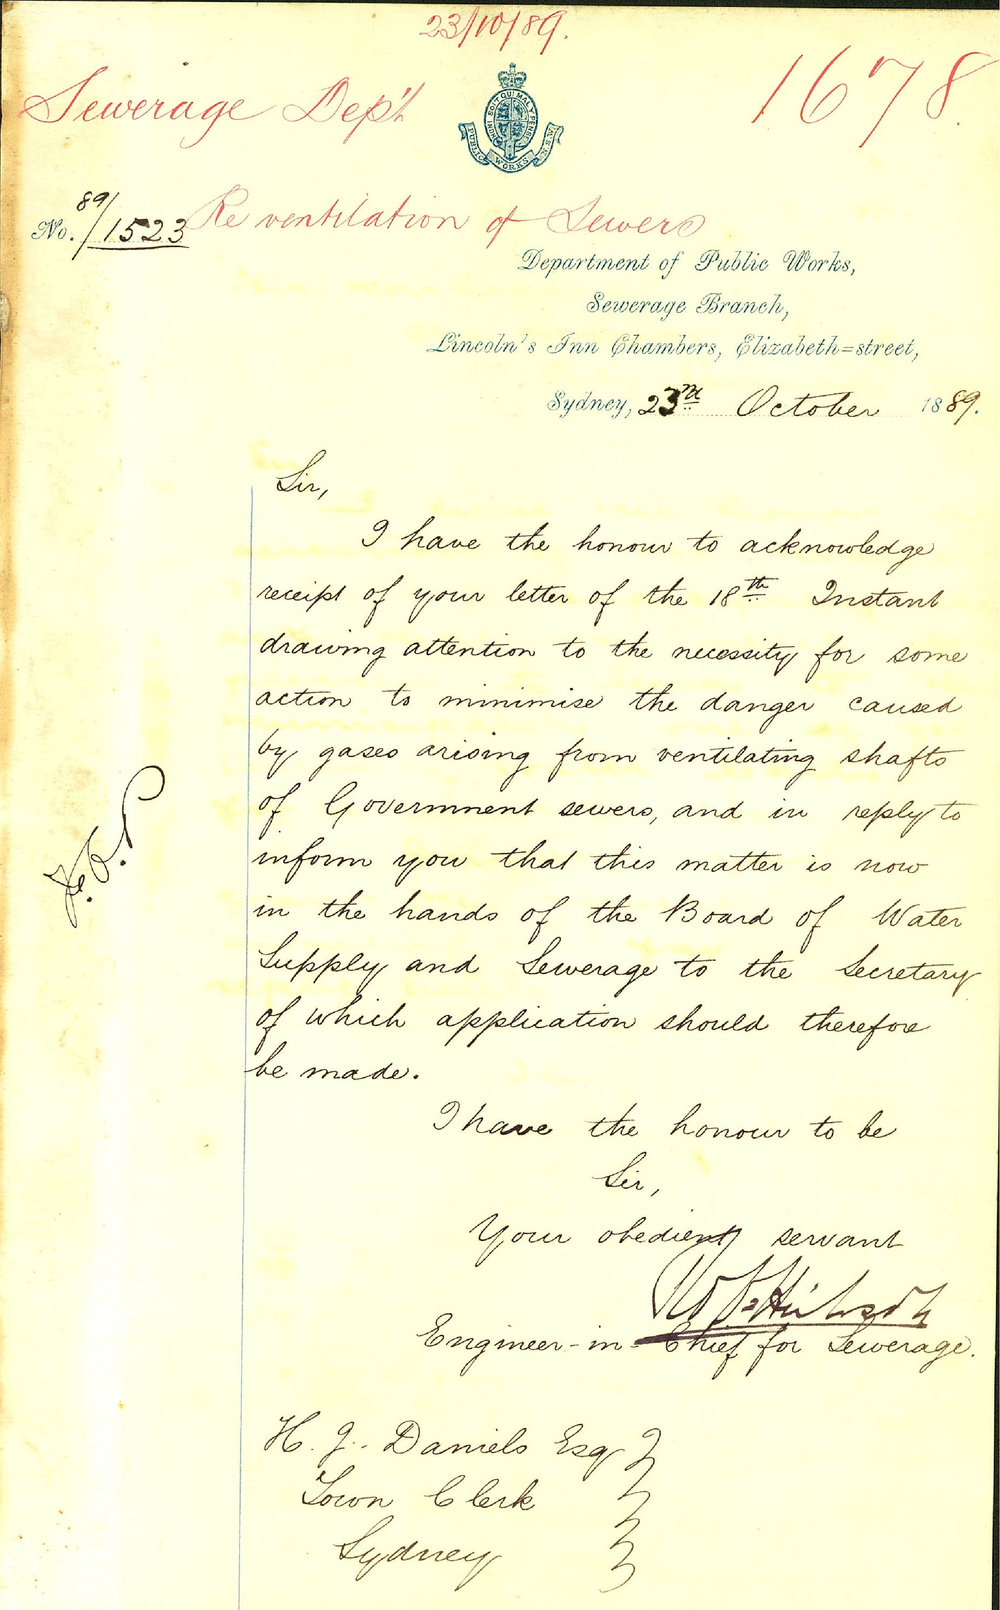 23/10/89.
1678.
Sewerage Dep't
SOIT QUI MAL Y PENSE
HONI
PUBLIC WORKS N.S.W.
No. 89/1523
Re ventilation of Sewers
Department of Public Works,
Sewerage Branch,
Lincoln's Inn Chambers, Elizabeth=street,
Sydney, 23rd October 1889.
Sir,
I have the honour to acknowledge
receipt of your letter of the 18th Instant
drawing attention to the necessity for some
action to minimise the danger caused
by gases arising from ventilating shafts
of Government sewers, and in reply to
inform you that this matter is now
in the hands of the Board of Water
Supply and Sewerage to the Secretary
of which application should therefore
be made.
I have the honour to be
Sir,
Your obedient servant
Engineer-in-Chief for Sewerage.
H. J. Daniels Esq
Town Clerk
Sydney